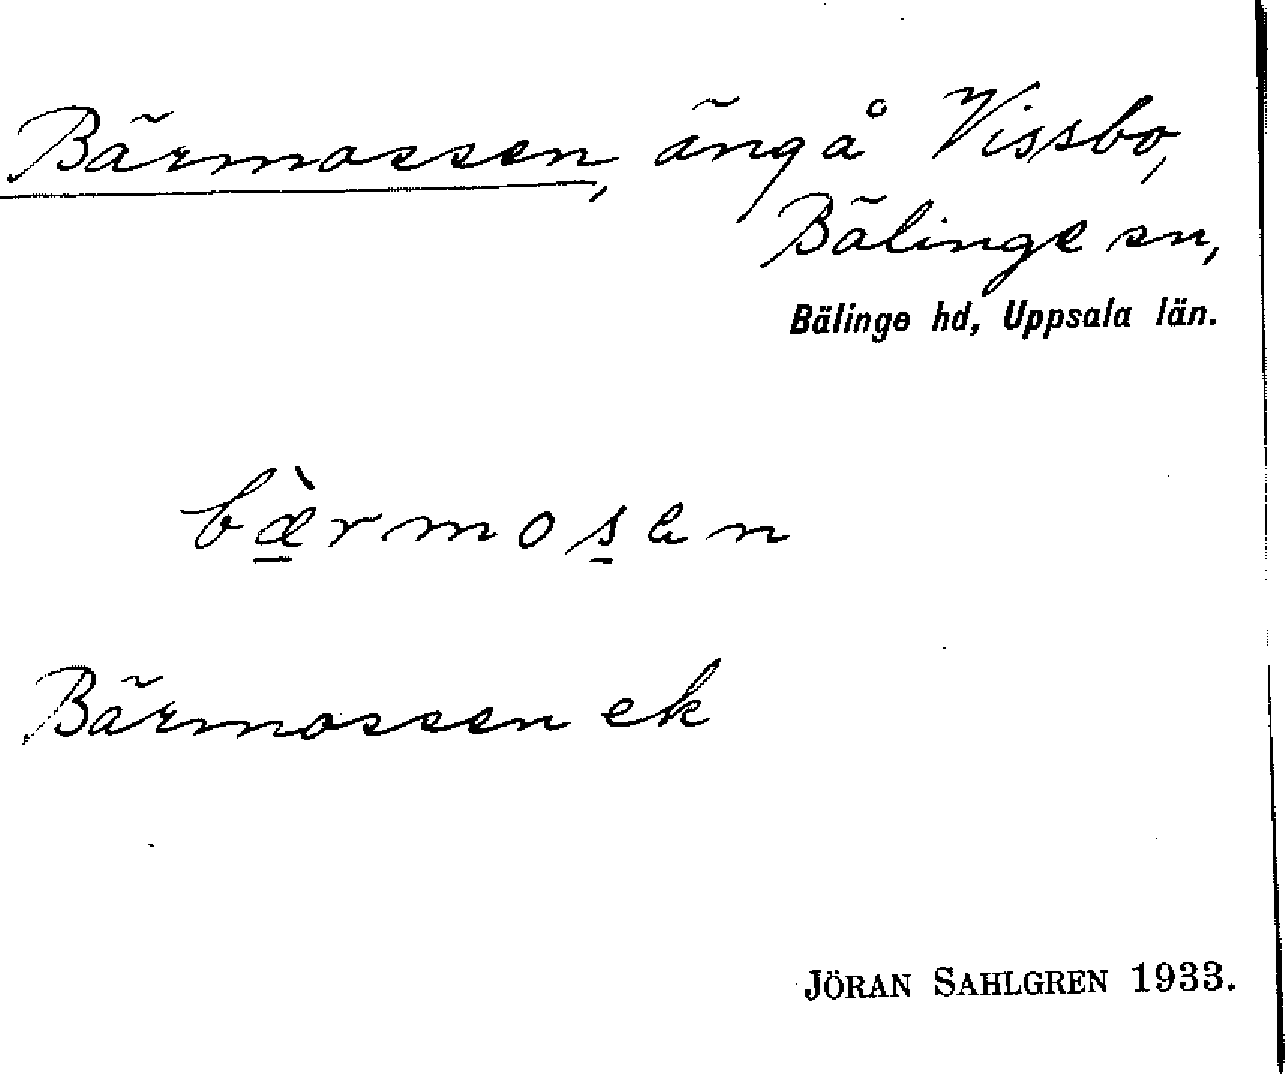 Bärmossen, äng å Vissbo,
Bälinge sn,
Bälinge hd, Uppsala län.
bæ̱̀rmos̱en
Bärmossen ek
JÖRAN SAHLGREN 1933.